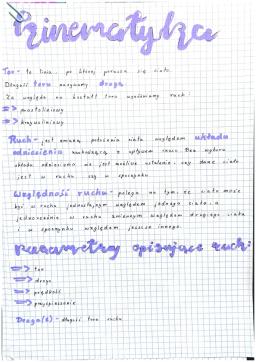 Kinematyka
Tor - to linia, po której porusza się ciało
Długość toru nazywamy drogą
Ze względu na kształt toru wyróżniamy ruch:
=> prostoliniowy
=> krzywoliniowy
Ruch - jest zmianą położenia ciała względem układu
odniesienia zachodzącą z upływem czasu. Bez wyboru
układu odniesienia nie jest możliwe ustalenie, czy dane ciało
jest w ruchu czy w spoczynku
Względność ruchu - polega na tym, że ciało może
być w ruchu jednostajnym względem jednego ciała, a
jednocześnie w ruchu zmiennym względem drugiego ciała
i w spoczynku względem jeszcze innego.
Parametry opisujące ruch:
=> tor
=> droga
=> prędkość
=> przyspieszenie
Droga(s) - długość toru ruchu